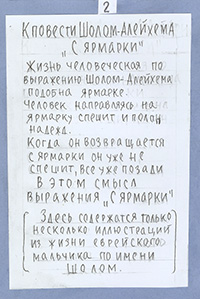 2
К ПОВЕСТИ ШОЛОМ-АЛЕЙХЕМА
„С ЯРМАРКИ"
ЖИЗНЬ ЧЕЛОВЕЧЕСКАЯ ПО
ВЫРАЖЕНИЮ ШОЛОМ-АЛЕЙХЕМА
ПОДОБНА ЯРМАРКЕ.
ЧЕЛОВЕК НАПРАВЛЯЯСЬ НА
ЯРМАРКУ СПЕШИТ И ПОЛОН
НАДЕЖД.
КОГДА ОН ВОЗВРАЩАЕТСЯ
С ЯРМАРКИ ОН УЖЕ НЕ
СПЕШИТ, ВСЕ УЖЕ ПОЗАДИ
В ЭТОМ СМЫСЛ
ВЫРАЖЕНИЯ „С ЯРМАРКИ"
ЗДЕСЬ СОДЕРЖАТСЯ ТОЛЬКО
НЕСКОЛЬКО ИЛЛЮСТРАЦИЙ
ИЗ ЖИЗНИ ЕВРЕЙСКОГО
МАЛЬЧИКА ПО ИМЕНИ
ШОЛОМ.